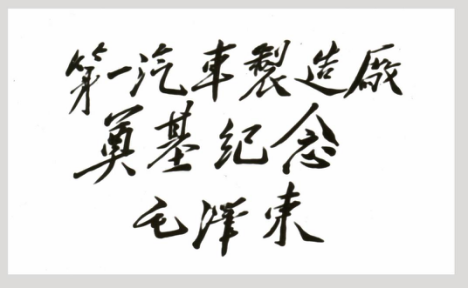 第一汽車製造廠
奠基纪念
毛澤东